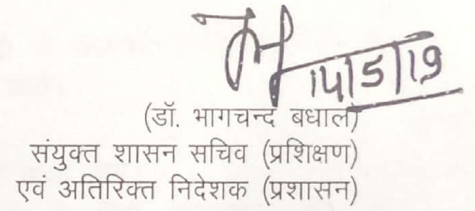 14/5/19
(डॉ. भागचन्द बधाल)
संयुक्त शासन सचिव (प्रशिक्षण)
एवं अतिरिक्त निदेशक (प्रशासन)